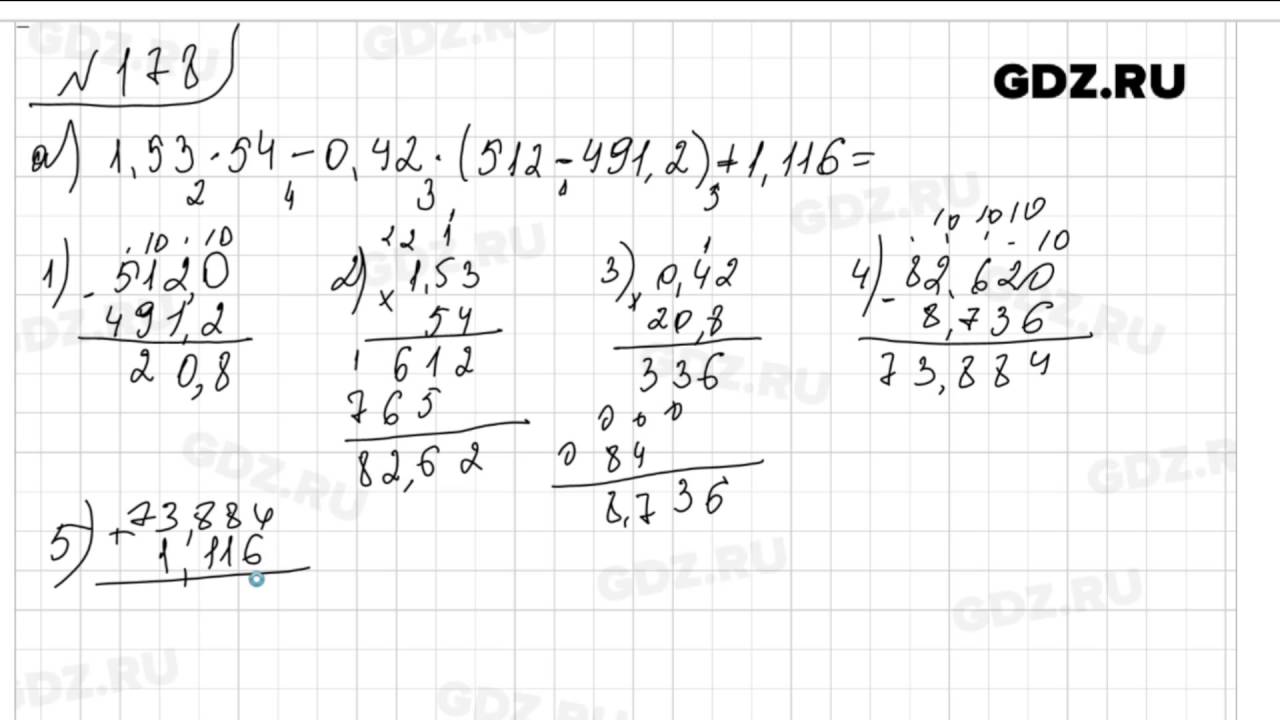 N 178
GDZ.RU
а) 1,53 · 54 - 0,42 · (512 - 491,2) + 1,116 =
2 4 3 1 5
1) 2) 3) 4)
. 10 . 10
- 512,0
491,2
20,8
2 2 1
× 1,53
54
1 612
765
82,62
1
× 0,42
20,8
336
000
0 84
8,736
10 10 10
. . . . 10
- 82,620
8,736
73,884
5) + 73,884
1,116
,